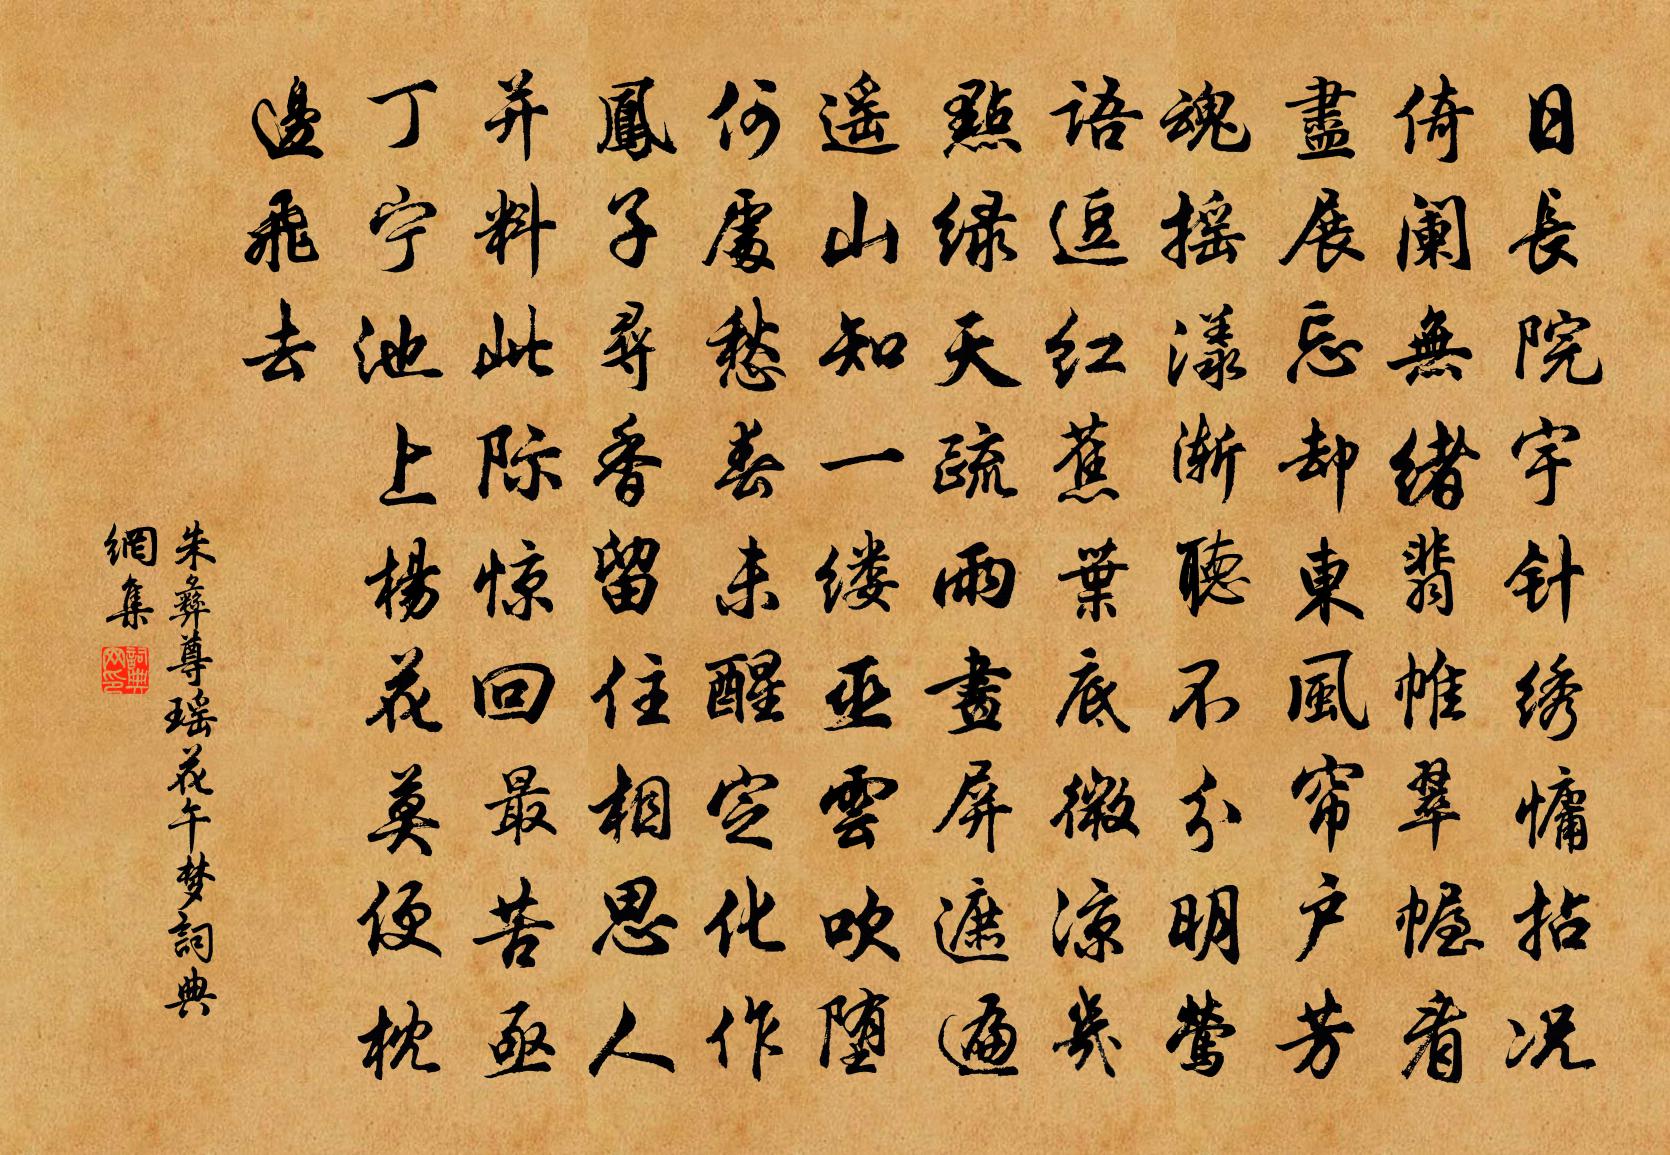 日長院宇针绣慵拈况
倚阑無緒翡帷翠幄看
盡展忘却東風帘户芳
魂摇漾渐聽不分明莺
語逗红蕉葉底微涼幾
點绿天疏雨畫屏遮遍
遥山知一缕巫雲吹堕
何處愁春未醒定化作
鳳子尋香留住相思人
并料此际惊回最苦亟
丁宁池上楊花莫便枕
邊飛去
朱彝尊瑶花午梦詞典
網集